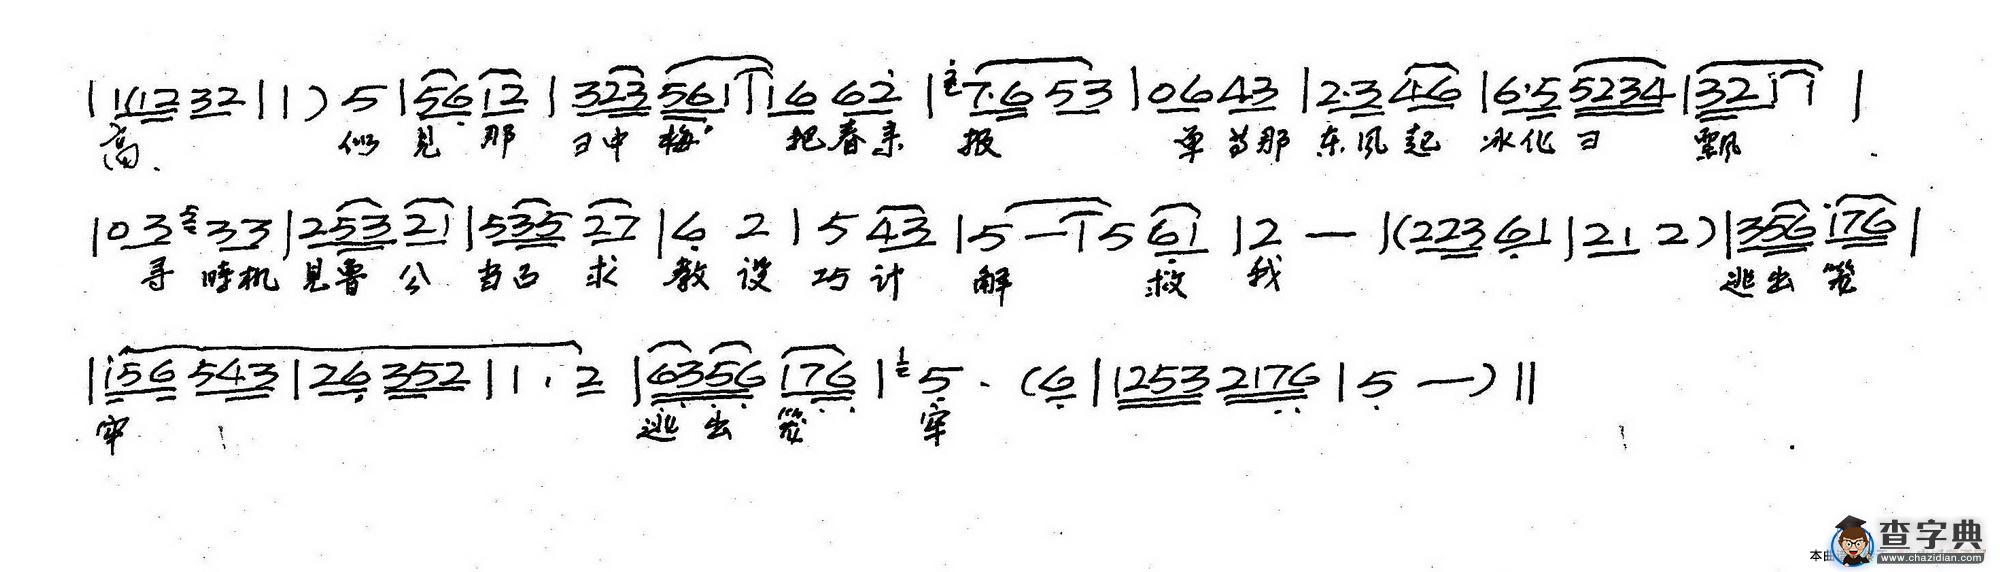 | 1 1 1 2 3 2 | 1 ) 5 | 5 6 1 2 | 3 2 3 5 6 1 | 1 6 6 2 | 7 · 6 5 3 | 0 6 4 3 | 2 · 3 4 6 | 6 · 5 5 2 3 4 | 3 2 1 1 |
高 似 见 那 中 梅 把 春 来 报 单 等 那 东 风 起 冰 化 飘
| 0 3 3 3 | 2 5 3 2 1 | 5 3 5 2 7 | 6 2 | 5 4 3 | 5 — | 5 6 1 | 2 — | ( 2 2 3 6 1 | 2 1 2 ) | 3 5 6 1 7 6 |
寻 时机 见鲁 公 当面 求 教 设 巧 计 解 救 我 逃出 笼
| 1 5 6 5 4 3 | 2 6 3 5 2 | 1 · 2 | 6 3 5 6 1 7 6 | 5 · ( 6 | 1 2 5 3 2 1 7 6 | 5 — ) ‖
牢 逃 出 笼 牢
查字典
www.chazidian.com
本曲